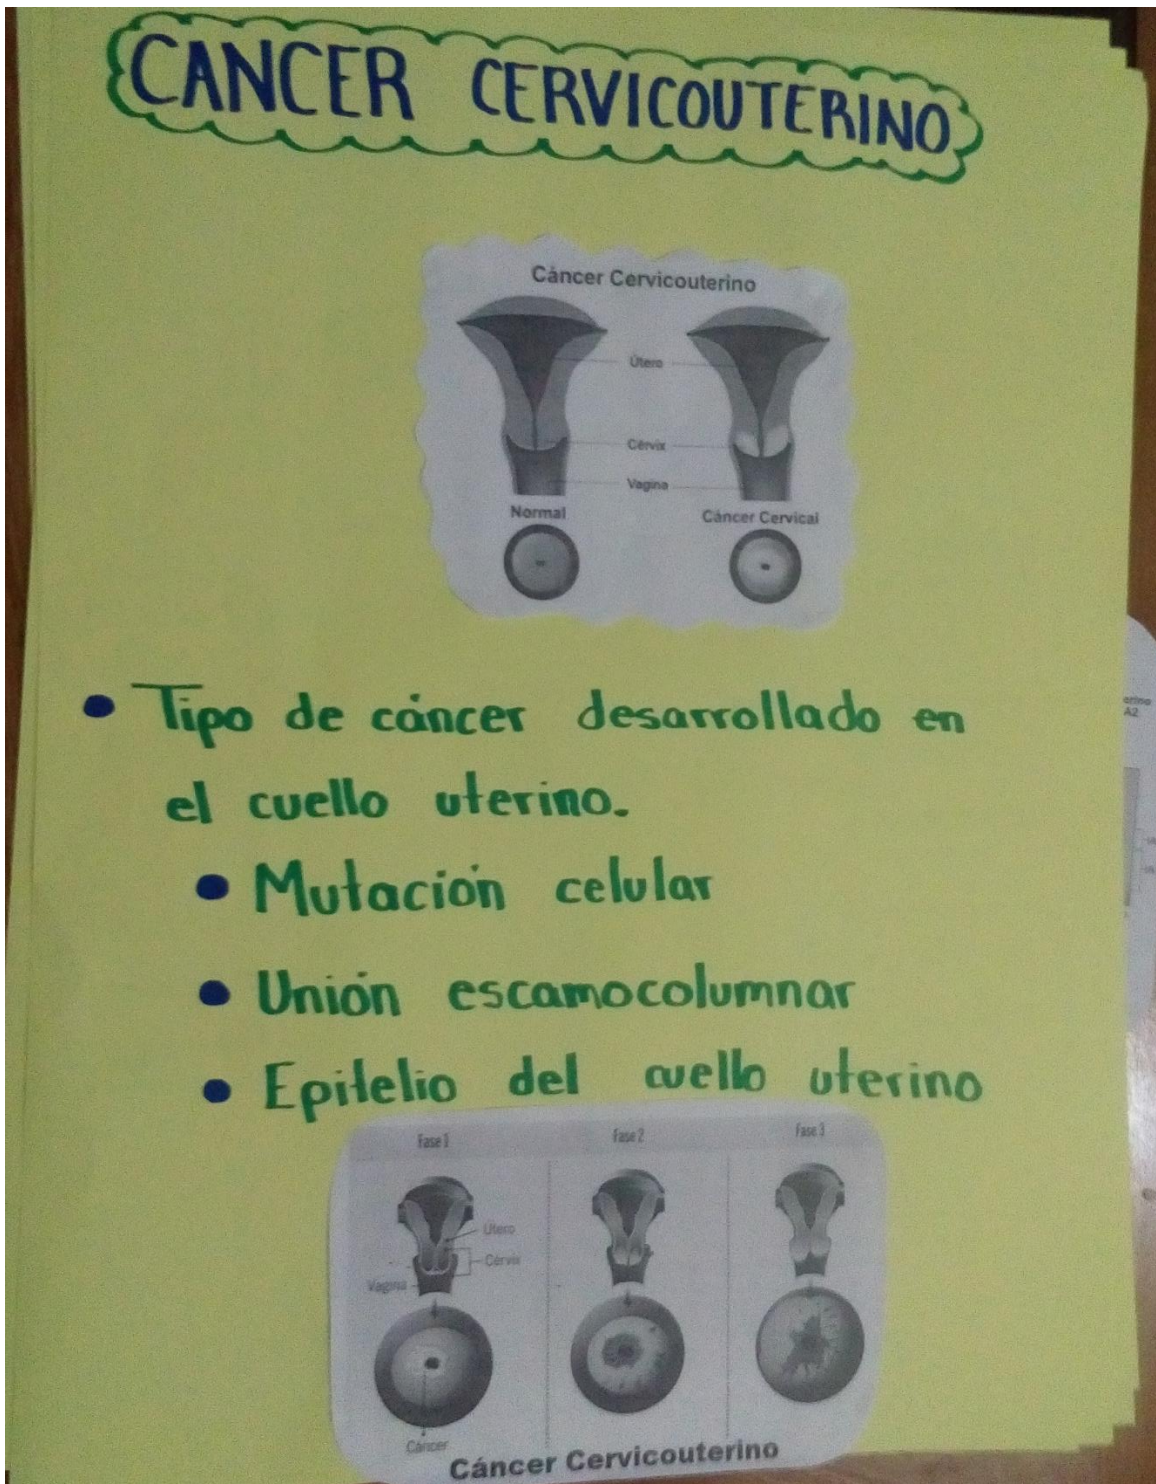 CANCER CERVICOUTERINO
Cáncer Cervicouterino
Útero
Cérvix
Vagina
Normal
Cáncer Cervical
• Tipo de cáncer desarrollado en
el cuello uterino.
• Mutación celular
• Unión escamocolumnar
• Epitelio del cuello uterino
Fase 1 Fase 2 Fase 3
Útero
Cérvix
Vagina
Cáncer
Cáncer Cervicouterino
erino
A2